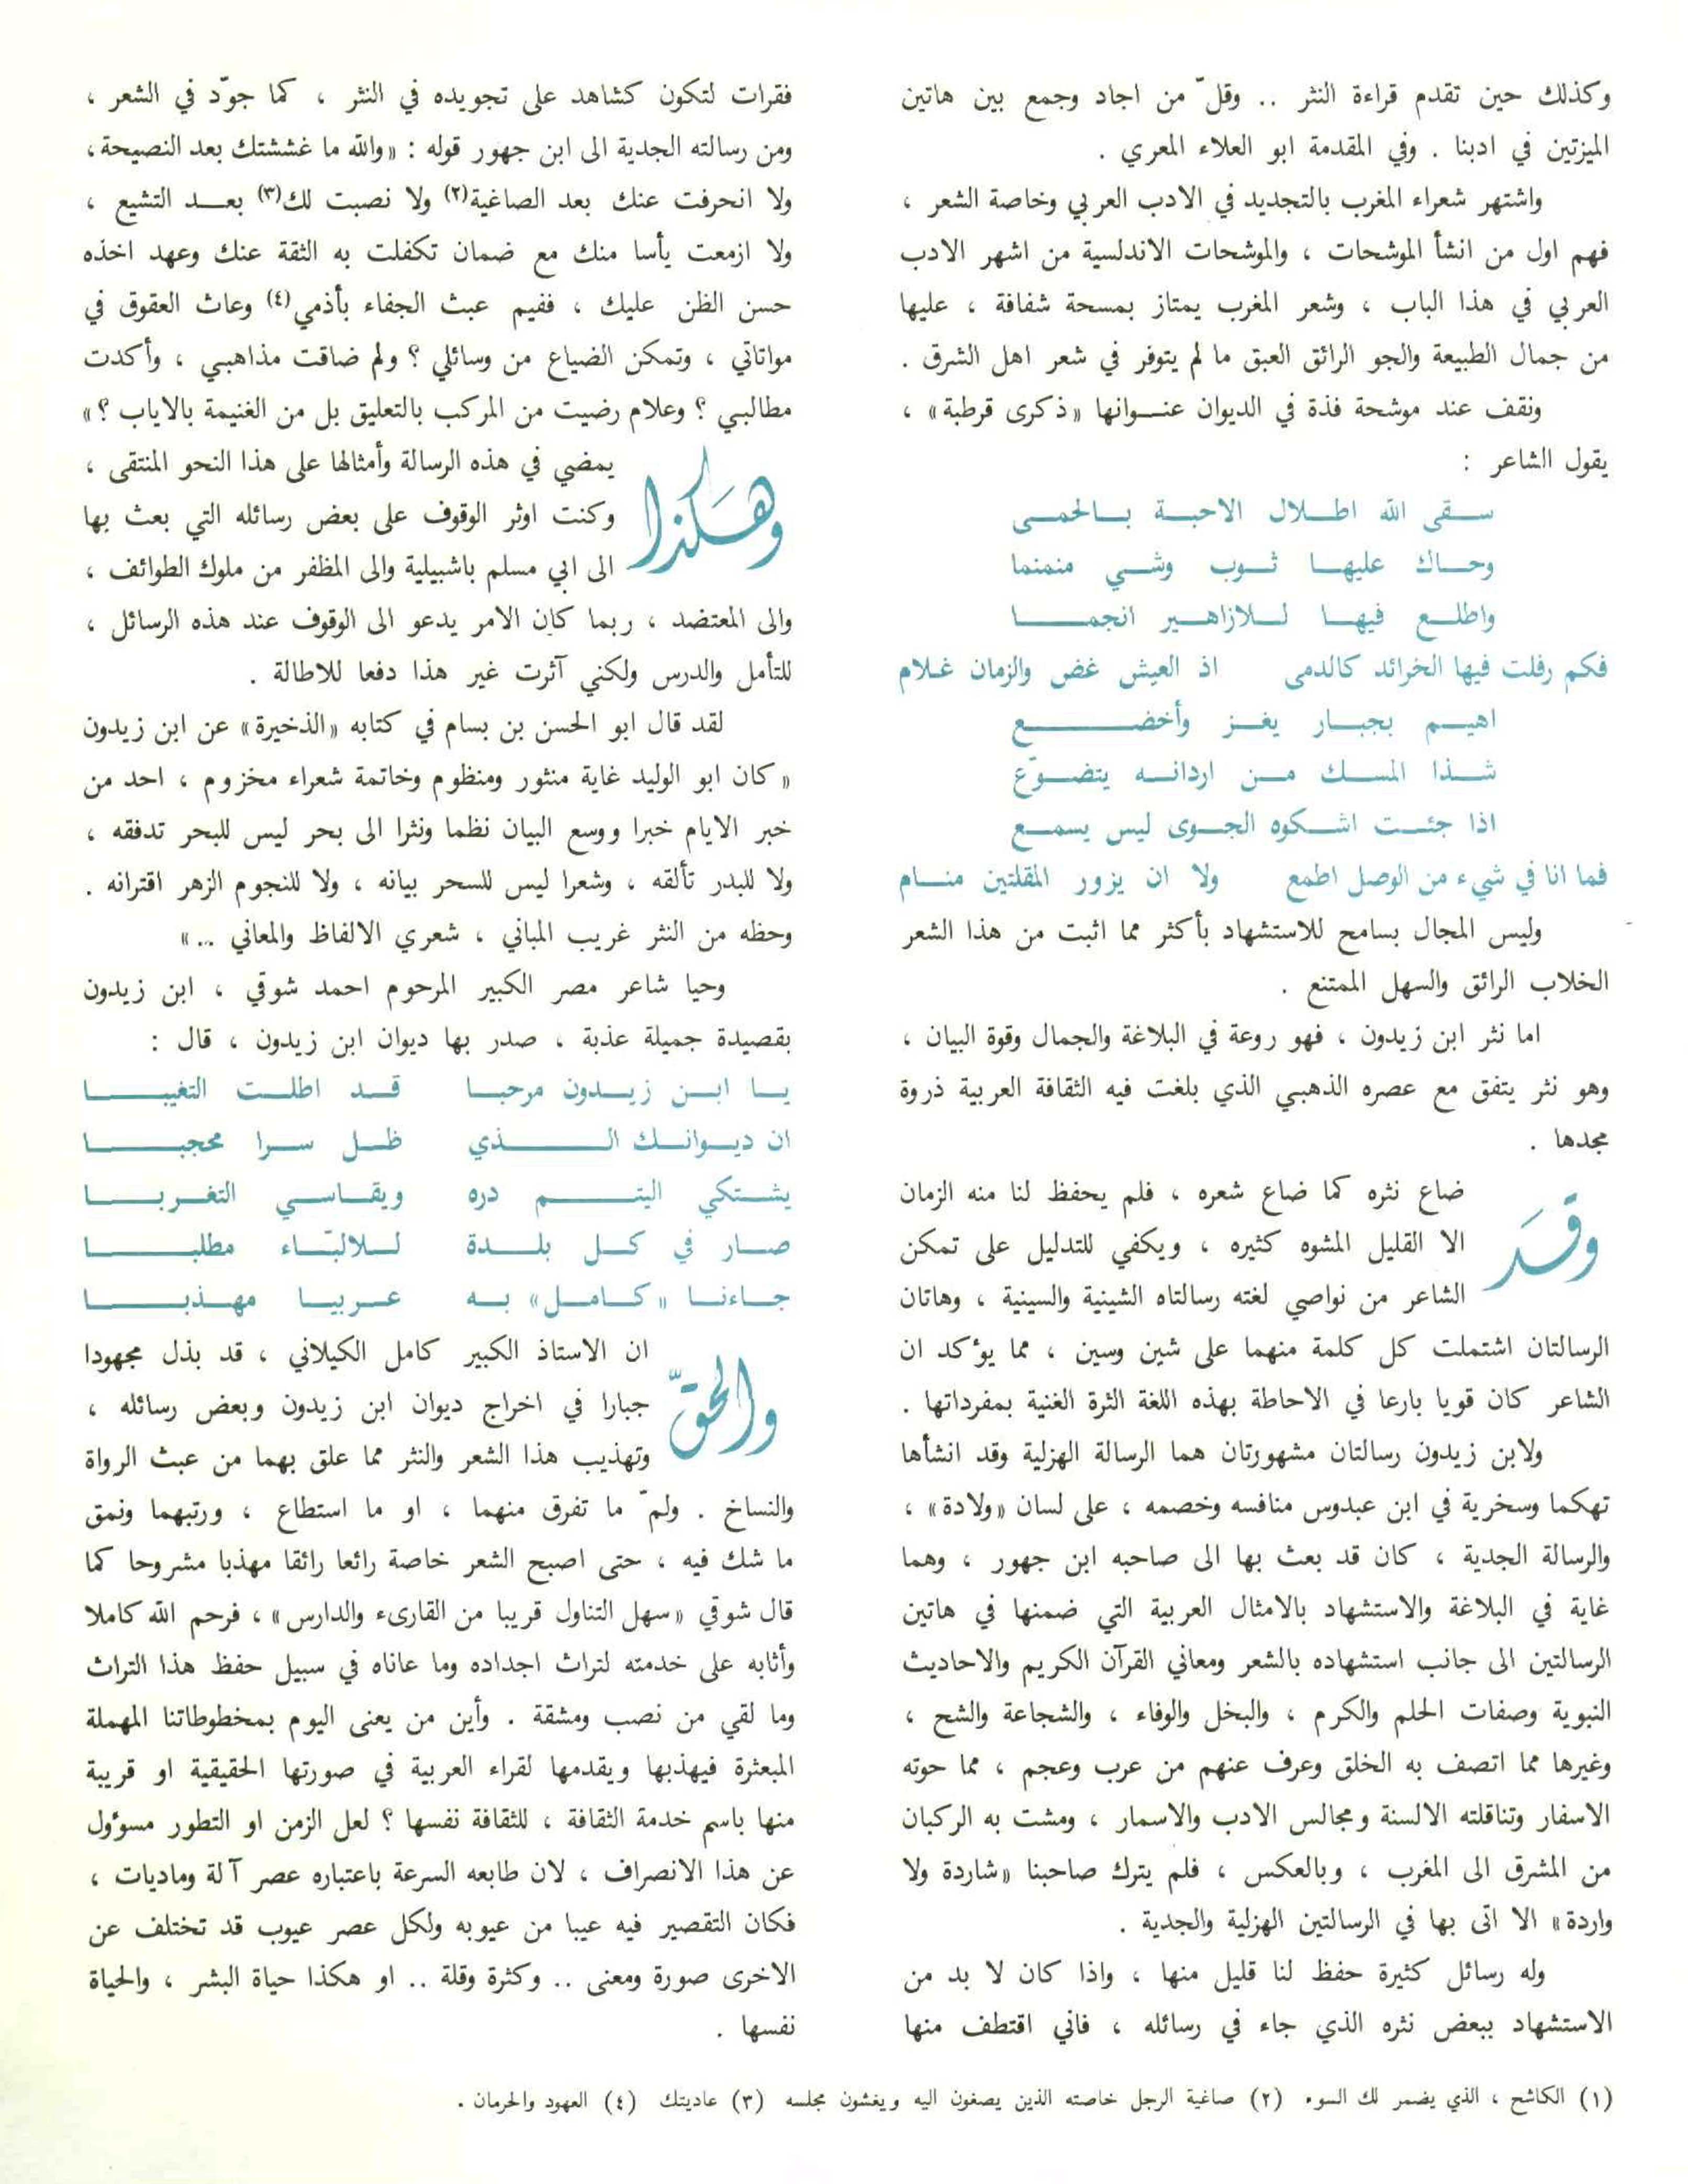 وكذلك حين تقدم قراءة النثر .. وقلّ من اجاد وجمع بين هاتين
الميزتين في ادبنا . وفي المقدمة ابو العلاء المعري .
واشتهر شعراء المغرب بالتجديد في الادب العربي وخاصة الشعر ،
فهم اول من انشأ الموشحات ، والموشحات الاندلسية من اشهر الادب
العربي في هذا الباب ، وشعر المغرب يمتاز بمسحة شفافة ، عليها
من جمال الطبيعة والجو الرائق العبق ما لم يتوفر في شعر اهل الشرق .
ونقف عند موشحة فذة في الديوان عنوانها «ذكرى قرطبة» ،
يقول الشاعر :
سقى الله اطلال الاحبة بالحمى
وحاك عليها ثوب وشي منمنما
واطلع فيها للازاهير انجما
فكم رفلت فيها الخرائد كالدمى اذ العيش غض والزمان غلام
اهيم بجبار يغز وأخضع
شذا المسك من اردانه يتضوّع
اذا جئت اشكوه الجوى ليس يسمع
فما انا في شيء من الوصل اطمع ولا ان يزور المقلتين منام
وليس المجال بسامح للاستشهاد بأكثر مما اثبت من هذا الشعر
الخلاب الرائق والسهل الممتنع .
اما نثر ابن زيدون ، فهو روعة في البلاغة والجمال وقوة البيان ،
وهو نثر يتفق مع عصره الذهبي الذي بلغت فيه الثقافة العربية ذروة
مجدها .
وقد ضاع نثره كما ضاع شعره ، فلم يحفظ لنا منه الزمان
الا القليل المشوه كثيره ، ويكفي للتدليل على تمكن
الشاعر من نواصي لغته رسالتاه الشينية والسينية ، وهاتان
الرسالتان اشتملت كل كلمة منهما على شين وسين ، مما يؤكد ان
الشاعر كان قويا بارعا في الاحاطة بهذه اللغة الثرة الغنية بمفرداتها .
ولابن زيدون رسالتان مشهورتان هما الرسالة الهزلية وقد انشأها
تهكما وسخرية في ابن عبدوس منافسه وخصمه ، على لسان «ولادة» ،
والرسالة الجدية ، كان قد بعث بها الى صاحبه ابن جهور ، وهما
غاية في البلاغة والاستشهاد بالامثال العربية التي ضمنها في هاتين
الرسالتين الى جانب استشهاده بالشعر ومعاني القرآن الكريم والاحاديث
النبوية وصفات الحلم والكرم ، والبخل والوفاء ، والشجاعة والشح ،
وغيرها مما اتصف به الخلق وعرف عنهم من عرب وعجم ، مما حوته
الاسفار وتناقلته الالسنة ومجالس الادب والاسمار ، ومشت به الركبان
من المشرق الى المغرب ، وبالعكس ، فلم يترك صاحبنا «شاردة ولا
واردة» الا اتى بها في الرسالتين الهزلية والجدية .
وله رسائل كثيرة حفظ لنا قليل منها ، واذا كان لا بد من
الاستشهاد ببعض نثره الذي جاء في رسائله ، فاني اقتطف منها
فقرات لتكون كشاهد على تجويده في النثر ، كما جوّد في الشعر ،
ومن رسالته الجدية الى ابن جهور قوله : «والله ما غششتك بعد النصيحة،
ولا انحرفت عنك بعد الصاغية(٢) ولا نصبت لك(٣) بعد التشيع ،
ولا ازمعت يأسا منك مع ضمان تكفلت به الثقة عنك وعهد اخذه
حسن الظن عليك ، ففيم عبث الجفاء بأذمي(٤) وعاث العقوق في
مواتاتي ، وتمكن الضياع من وسائلي ؟ ولم ضاقت مذاهبي ، وأكدت
مطالبي ؟ وعلام رضيت من المركب بالتعليق بل من الغنيمة بالاياب ؟»
وهكذا يمضي في هذه الرسالة وأمثالها على هذا النحو المنتقى ،
وكنت اوثر الوقوف على بعض رسائله التي بعث بها
الى ابي مسلم باشبيلية والى المظفر من ملوك الطوائف ،
والى المعتضد ، ربما كان الامر يدعو الى الوقوف عند هذه الرسائل ،
للتأمل والدرس ولكني آثرت غير هذا دفعا للاطالة .
لقد قال ابو الحسن بن بسام في كتابه «الذخيرة» عن ابن زيدون
«كان ابو الوليد غاية منثور ومنظوم وخاتمة شعراء مخزوم ، احد من
خبر الايام خبرا ووسع البيان نظما ونثرا الى بحر ليس للبحر تدفقه ،
ولا للبدر تألقه ، وشعرا ليس للسحر بيانه ، ولا للنجوم الزهر اقترانه .
وحظه من النثر غريب المباني ، شعري الالفاظ والمعاني ..»
وحيا شاعر مصر الكبير المرحوم احمد شوقي ، ابن زيدون
بقصيدة جميلة عذبة ، صدر بها ديوان ابن زيدون ، قال :
يا ابن زيدون مرحبا قد اطلت التغيبا
ان ديوانك الذي ظل سرا محجبا
يشتكي اليتم دره ويقاسي التغربا
صار في كل بلدة للالبّاء مطلبا
جاءنا «كامل» به عربيا مهذبا
والحقّ ان الاستاذ الكبير كامل الكيلاني ، قد بذل مجهودا
جبارا في اخراج ديوان ابن زيدون وبعض رسائله ،
وتهذيب هذا الشعر والنثر مما علق بهما من عبث الرواة
والنساخ . ولمّ ما تفرق منهما ، او ما استطاع ، ورتبهما ونمق
ما شك فيه ، حتى اصبح الشعر خاصة رائعا رائقا مهذبا مشروحا كما
قال شوقي «سهل التناول قريبا من القارىء والدارس» ، فرحم الله كاملا
وأثابه على خدمته لتراث اجداده وما عاناه في سبيل حفظ هذا التراث
وما لقي من نصب ومشقة . وأين من يعنى اليوم بمخطوطاتنا المهملة
المبعثرة فيهذبها ويقدمها لقراء العربية في صورتها الحقيقية او قريبة
منها باسم خدمة الثقافة ، للثقافة نفسها ؟ لعل الزمن او التطور مسؤول
عن هذا الانصراف ، لان طابعه السرعة باعتباره عصر آلة وماديات ،
فكان التقصير فيه عيبا من عيوبه ولكل عصر عيوب قد تختلف عن
الاخرى صورة ومعنى .. وكثرة وقلة .. او هكذا حياة البشر ، والحياة
نفسها .
(١) الكاشح ، الذي يضمر لك السوء (٢) صاغية الرجل خاصته الذين يصغون اليه ويغشون مجلسه (٣) عاديتك (٤) العهود والحرمان .